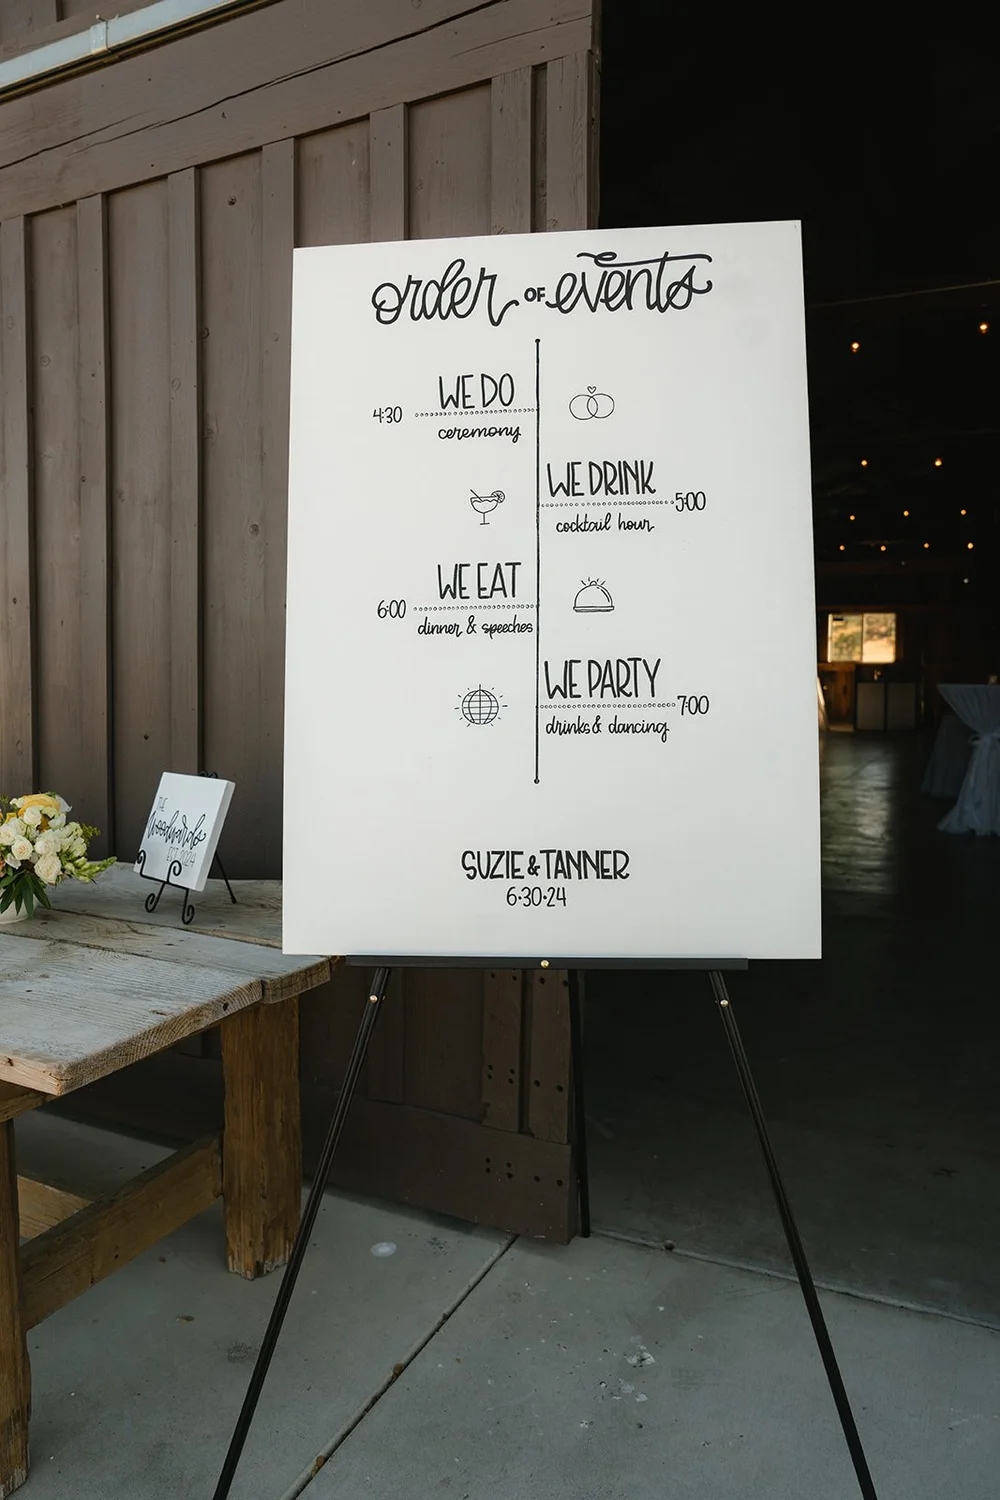 order OF events
WE DO
4:30
ceremony
WE DRINK
5:00
cocktail hour
WE EAT
6:00
dinner & speeches
WE PARTY
7:00
drinks & dancing
SUZIE & TANNER
6•30•24
THE
Woodwards
EST. 2024